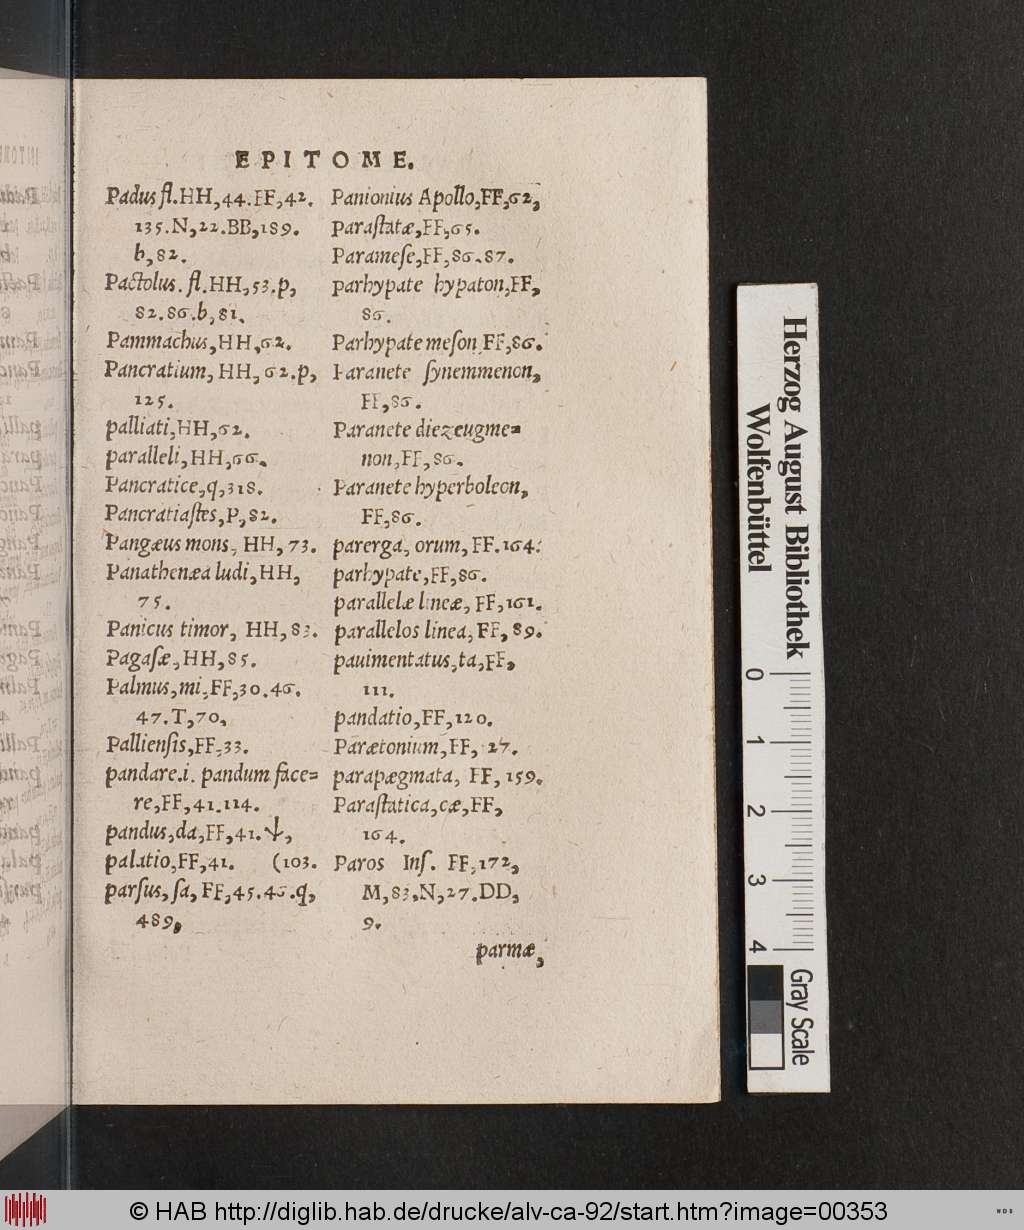 EPITOME.
Padus fl.HH,44.FF,42.
135.N,22.BB,189.
b,82.
Pactolus.fl.HH,53.p,
82.86.b,81.
Pammachus,HH,62.
Pancratium, HH,62.p,
125.
palliati,HH,62.
paralleli,HH,66.
Pancratice,q,318.
Pancratiaſtes,P,82.
Pangæus mons, HH, 73.
Panathenæa ludi,HH,
75.
Panicus timor, HH,83.
Pagaſæ,HH,85.
Palmus,mi,FF,30.46.
47.T,70,
Pallienſis,FF,33.
pandare.i. pandum face=
re,FF,41.114.
pandus,da,FF,41.ψ,
palatio,FF,41. (103.
parſus,ſa,FF,45.46.q,
489,
Panionius Apollo,FF,62,
paraſtatæ,FF,65.
Parameſe,FF,86.87.
parhypate hypaton,FF,
86.
Parhypate meſon,FF,86.
Paranete ſynemmenon,
FF,86.
Paranete diezeugme=
non,FF,86.
Paranete hyperboleon,
FF,86.
parerga, orum, FF.164.
parhypate,FF,86.
parallelæ lineæ, FF,161.
parallelos linea,FF,89.
pauimentatus,ta,FF,
111.
pandatio,FF,120.
Parætonium,FF, 27.
parapægmata, FF, 159.
Paraſtatica,cæ,FF,
164.
Paros Inſ. FF,172,
M,83,N,27.DD,
9.
parmæ,
Herzog August Bibliothek
Wolfenbüttel
0
1
2
3
4
Gray Scale
© HAB http://diglib.hab.de/drucke/alv-ca-92/start.htm?image=00353